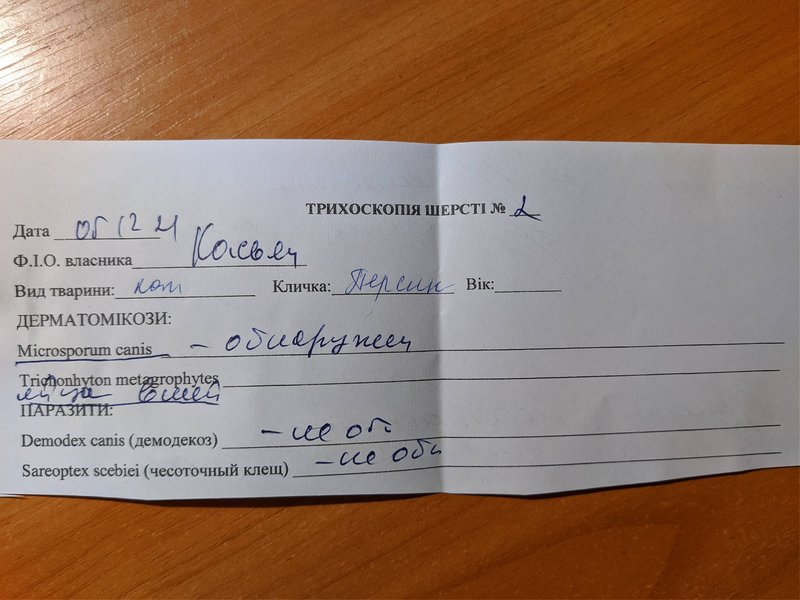 ТРИХОСКОПІЯ ШЕРСТІ № 2
Дата 05 12 21
Ф.І.О. власника
Вид тварини: кот Кличка: Персик Вік:
ДЕРМАТОМІКОЗИ:
Microsporum canis - обнаружен
Trichonhyton metagrophytes
яйца вшей
ПАРАЗИТИ:
Demodex canis (демодекоз) - не об
Sareoptex scebiei (чесоточный клещ) - не обн